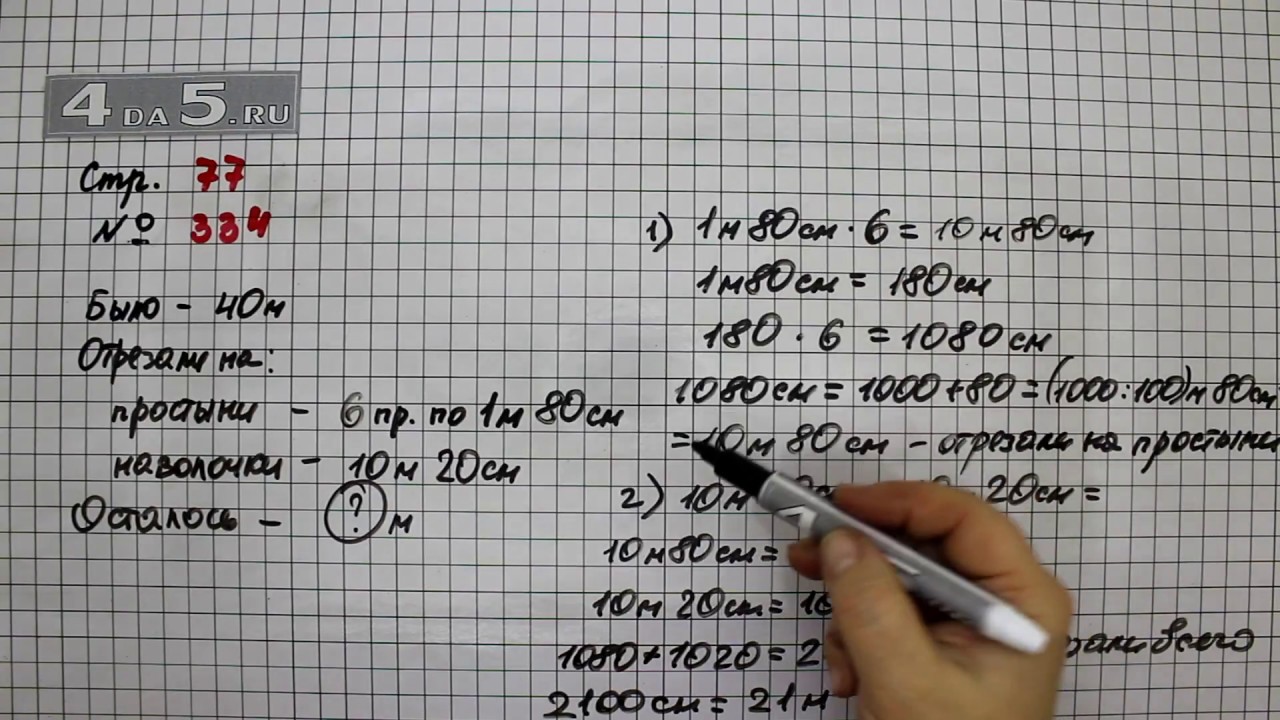 4DA5.RU
Стр. 77
№ 334
Было - 40м
Отрезали на:
простыни - 6 пр. по 1м 80см
наволочки - 10м 20см
Осталось - ? м
1) 1м 80см · 6 = 10м 80см
1м 80см = 180см
180 · 6 = 1080см
1080см = 1000 + 80 = (1000:100)м 80см
= 10м 80см - отрезали на простыни
2) 10м 20см =
10м 80см =
10м 20см =
1080 + 1020 = всего
2100см = 21м